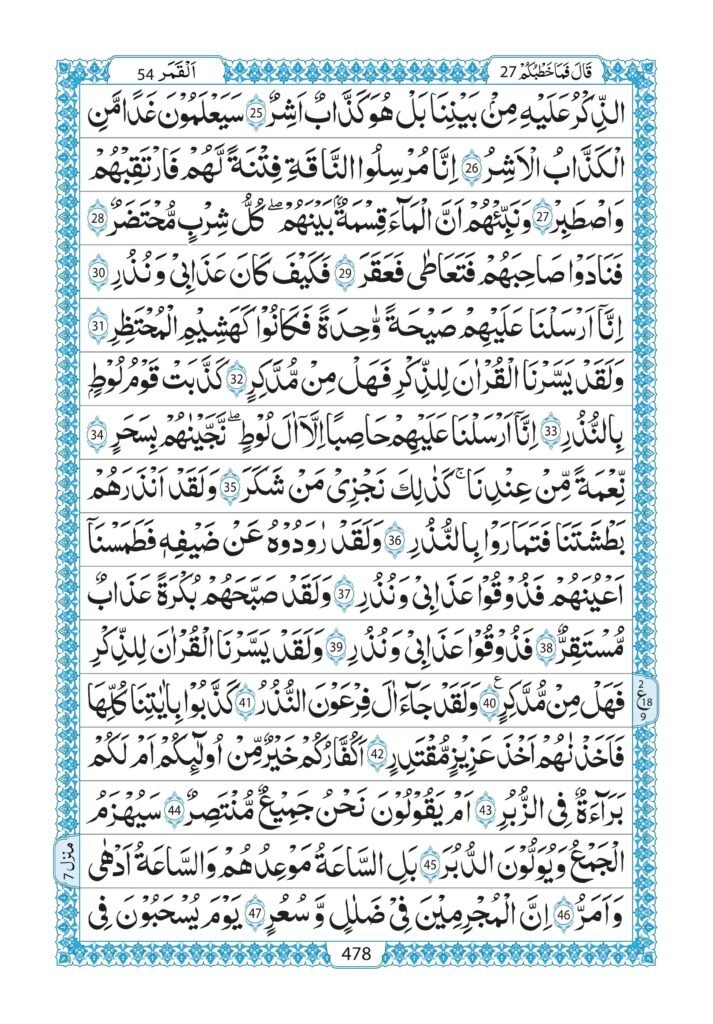 اَلْقَمَر 54
قَالَ فَمَا خَطْبُكُمْ 27
الذِّكْرُ عَلَيْهِ مِنْۢ بَيْنِنَا بَلْ هُوَ كَذَّابٌ اَشِرٌ ۝25 سَيَعْلَمُوْنَ غَدًا مَّنِ
الْكَذَّابُ الْاَشِرُ ۝26 اِنَّا مُرْسِلُوا النَّاقَةِ فِتْنَةً لَّهُمْ فَارْتَقِبْهُمْ
وَاصْطَبِرْ ۝27 وَنَبِّئْهُمْ اَنَّ الْمَآءَ قِسْمَةٌۢ بَيْنَهُمْ ۖ كُلُّ شِرْبٍ مُّحْتَضَرٌ ۝28
فَنَادَوْا صَاحِبَهُمْ فَتَعَاطٰى فَعَقَرَ ۝29 فَكَيْفَ كَانَ عَذَابِيْ وَنُذُرِ ۝30
اِنَّاۤ اَرْسَلْنَا عَلَيْهِمْ صَيْحَةً وَّاحِدَةً فَكَانُوْا كَهَشِيْمِ الْمُحْتَظِرِ ۝31
وَلَقَدْ يَسَّرْنَا الْقُرْاٰنَ لِلذِّكْرِ فَهَلْ مِنْ مُّدَّكِرٍ ۝32 كَذَّبَتْ قَوْمُ لُوْطٍۭ
بِالنُّذُرِ ۝33 اِنَّاۤ اَرْسَلْنَا عَلَيْهِمْ حَاصِبًا اِلَّاۤ اٰلَ لُوْطٍ ۖ نَّجَّيْنٰهُمْ بِسَحَرٍ ۝34
نِّعْمَةً مِّنْ عِنْدِنَا ۚ كَذٰلِكَ نَجْزِيْ مَنْ شَكَرَ ۝35 وَلَقَدْ اَنْذَرَهُمْ
بَطْشَتَنَا فَتَمَارَوْا بِالنُّذُرِ ۝36 وَلَقَدْ رَاوَدُوْهُ عَنْ ضَيْفِهٖ فَطَمَسْنَاۤ
اَعْيُنَهُمْ فَذُوْقُوْا عَذَابِيْ وَنُذُرِ ۝37 وَلَقَدْ صَبَّحَهُمْ بُكْرَةً عَذَابٌ
مُّسْتَقِرٌّ ۝38 فَذُوْقُوْا عَذَابِيْ وَنُذُرِ ۝39 وَلَقَدْ يَسَّرْنَا الْقُرْاٰنَ لِلذِّكْرِ
فَهَلْ مِنْ مُّدَّكِرٍ ۝40 ع وَلَقَدْ جَآءَ اٰلَ فِرْعَوْنَ النُّذُرُ ۝41 كَذَّبُوْا بِاٰيٰتِنَا كُلِّهَا
2 ع 18 9
فَاَخَذْنٰهُمْ اَخْذَ عَزِيْزٍ مُّقْتَدِرٍ ۝42 اَكُفَّارُكُمْ خَيْرٌ مِّنْ اُولٰٓئِكُمْ اَمْ لَكُمْ
بَرَآءَةٌ فِي الزُّبُرِ ۝43 اَمْ يَقُوْلُوْنَ نَحْنُ جَمِيْعٌ مُّنْتَصِرٌ ۝44 سَيُهْزَمُ
الْجَمْعُ وَيُوَلُّوْنَ الدُّبُرَ ۝45 بَلِ السَّاعَةُ مَوْعِدُهُمْ وَالسَّاعَةُ اَدْهٰى
منزل 7
وَاَمَرُّ ۝46 اِنَّ الْمُجْرِمِيْنَ فِيْ ضَلٰلٍ وَّسُعُرٍ ۝47 يَوْمَ يُسْحَبُوْنَ فِي
478